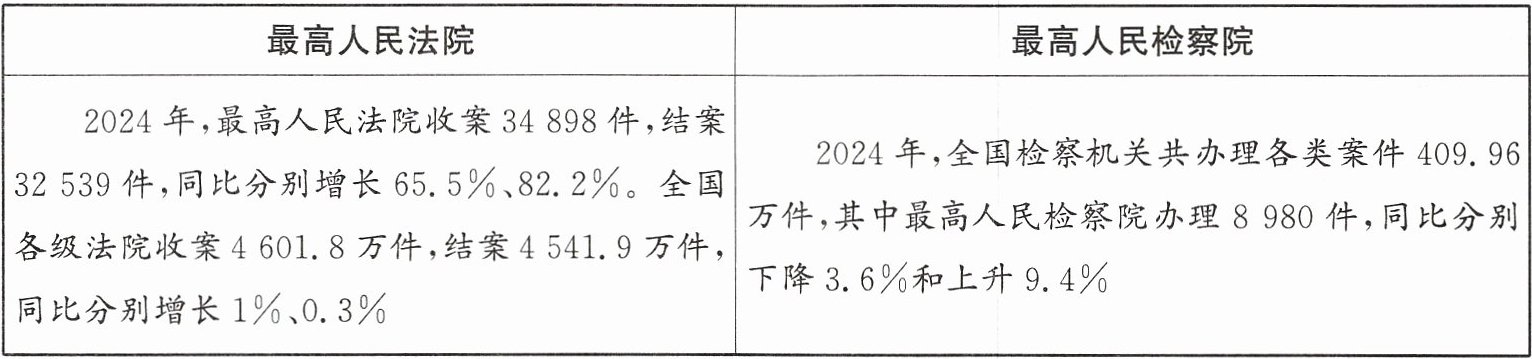 最高人民法院
2024 年,最高人民法院收案 34 898 件,结案
32 539 件,同比分别增长 65.5%、82.2%。全国
各级法院收案 4 601.8 万件,结案 4 541.9 万件,
同比分别增长 1%、0.3%
最高人民检察院
2024 年,全国检察机关共办理各类案件 409.96
万件,其中最高人民检察院办理 8 980 件,同比分别
下降 3.6%和上升 9.4%